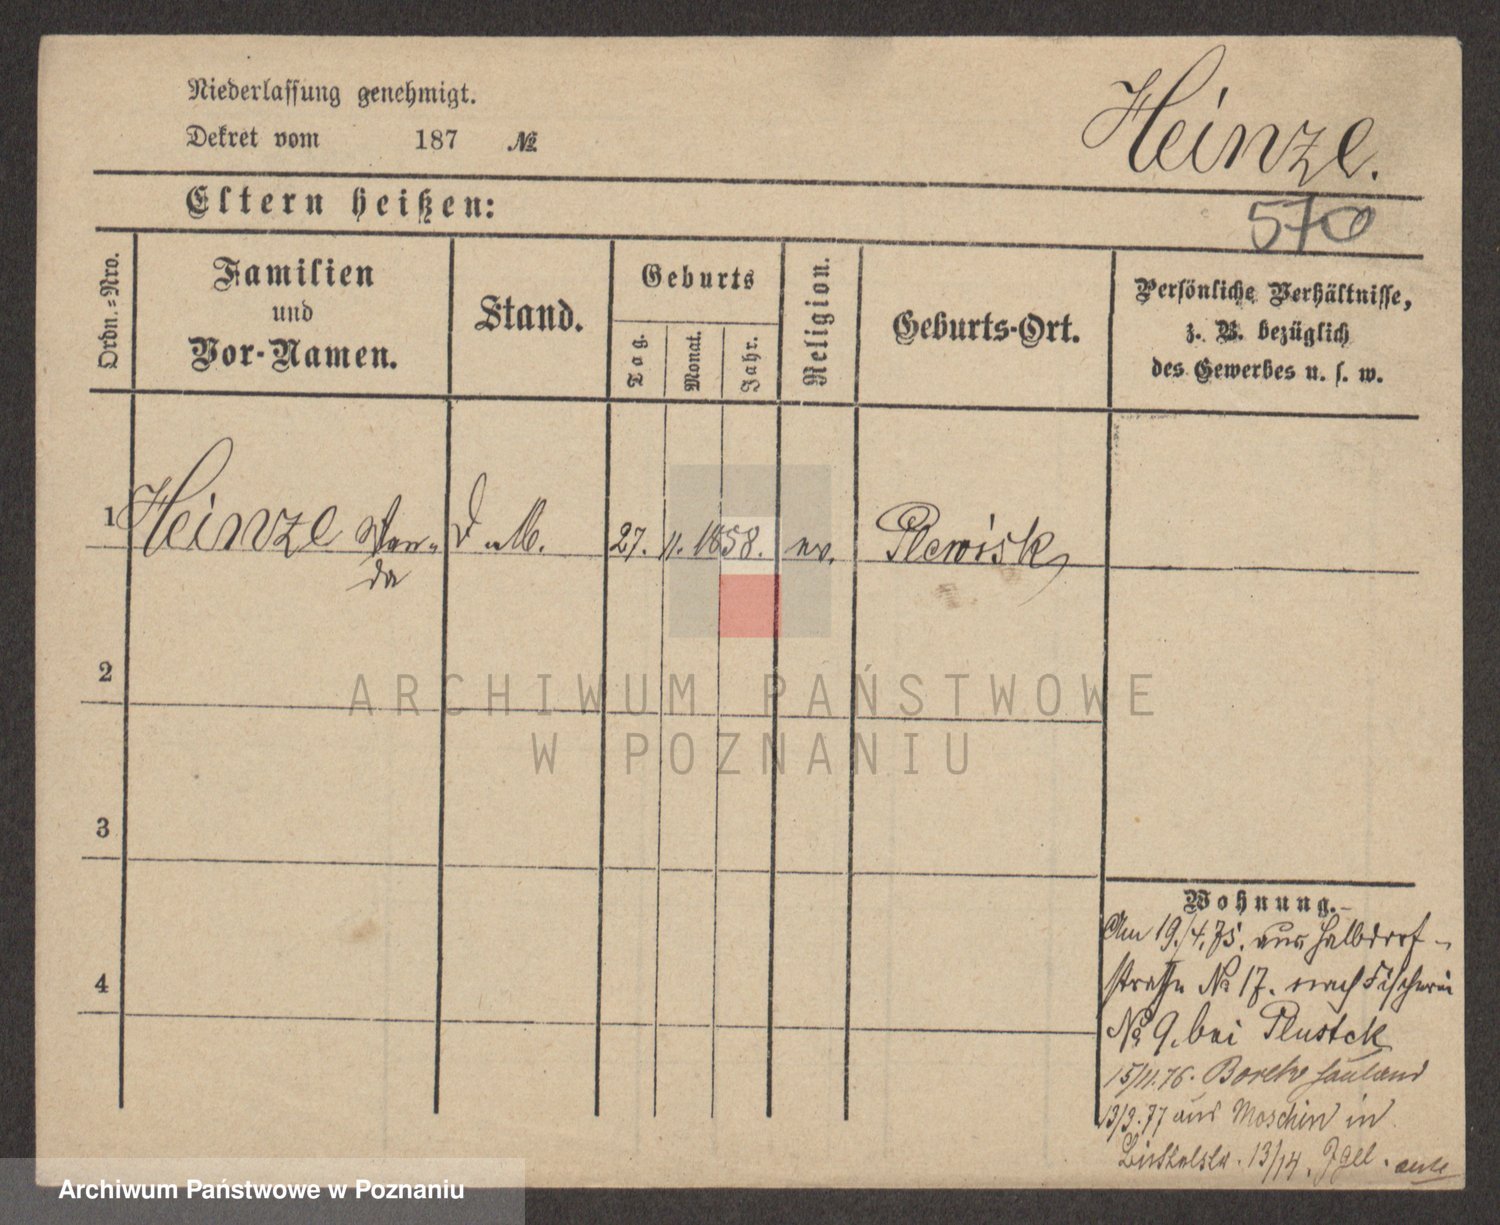 Niederlassung genehmigt.
Dekret vom 187 №
Heinze.
Eltern heißen:
570
Ordn.=Nro.
Familien
und
Vor-Namen.
Stand.
Geburts
Tag.
Monat.
Jahr.
Religion.
Geburts-Ort.
Persönliche Verhältnisse,
z. B. bezüglich
des Gewerbes u. s. w.
1 Heinze Wan-
da
D. M. 27. 11. 1858. ev. Plewisk
2
3
4
Wohnung.
Am 19./4.75. aus Halbdorf-
straße № 17. nach Fischerei
№ 9. bei Plustek
15/11.76. Hauland
13/9.77 aus Moschin in
13/14.
ARCHIWUM PAŃSTWOWE
W POZNANIU
Archiwum Państwowe w Poznaniu